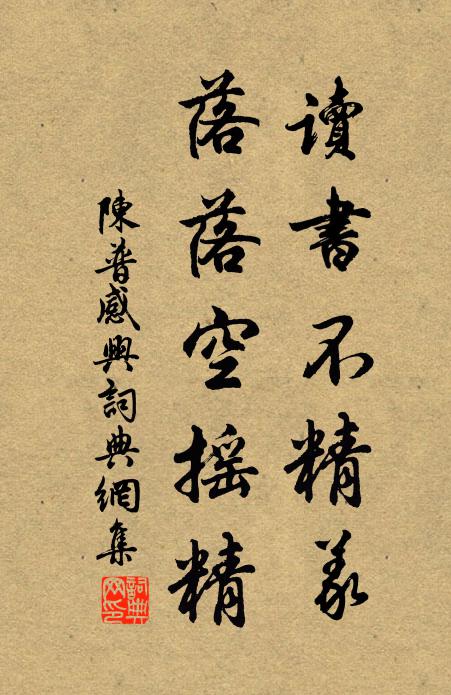 讀書不精義
落落空搖精
陳普感興詞典網集
詞典網印